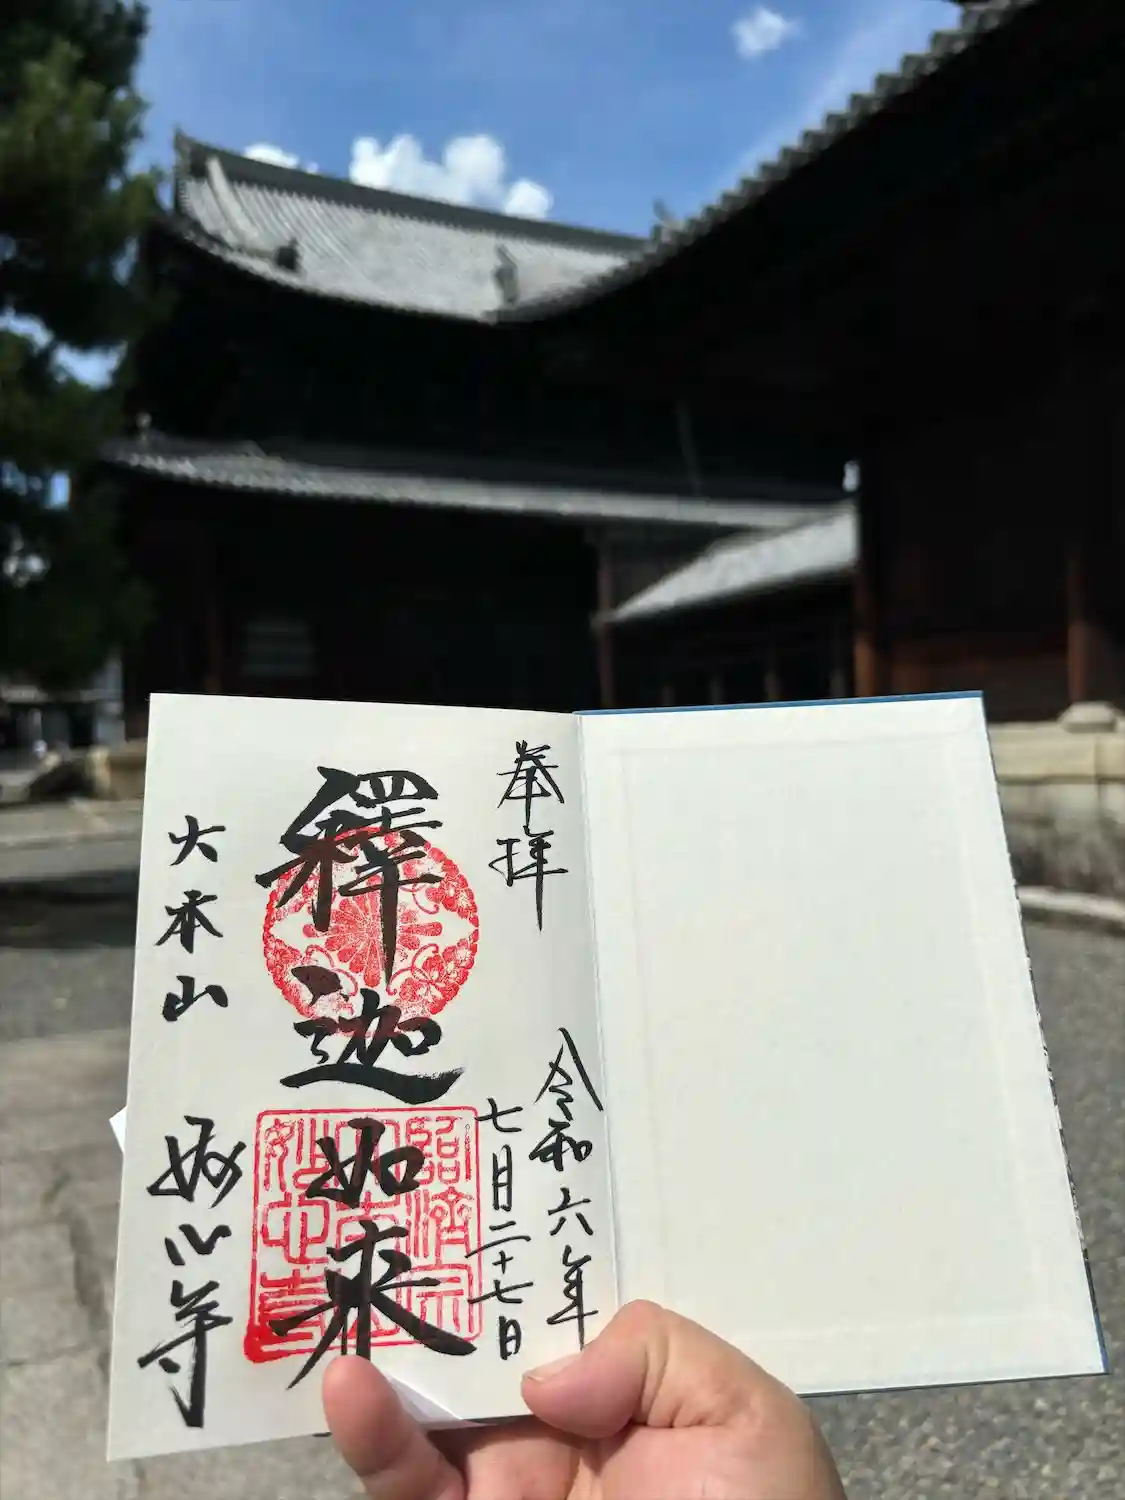 奉拝
令和六年
七月二十七日
釋迦如来
臨済宗
妙心寺
大本山
妙心寺